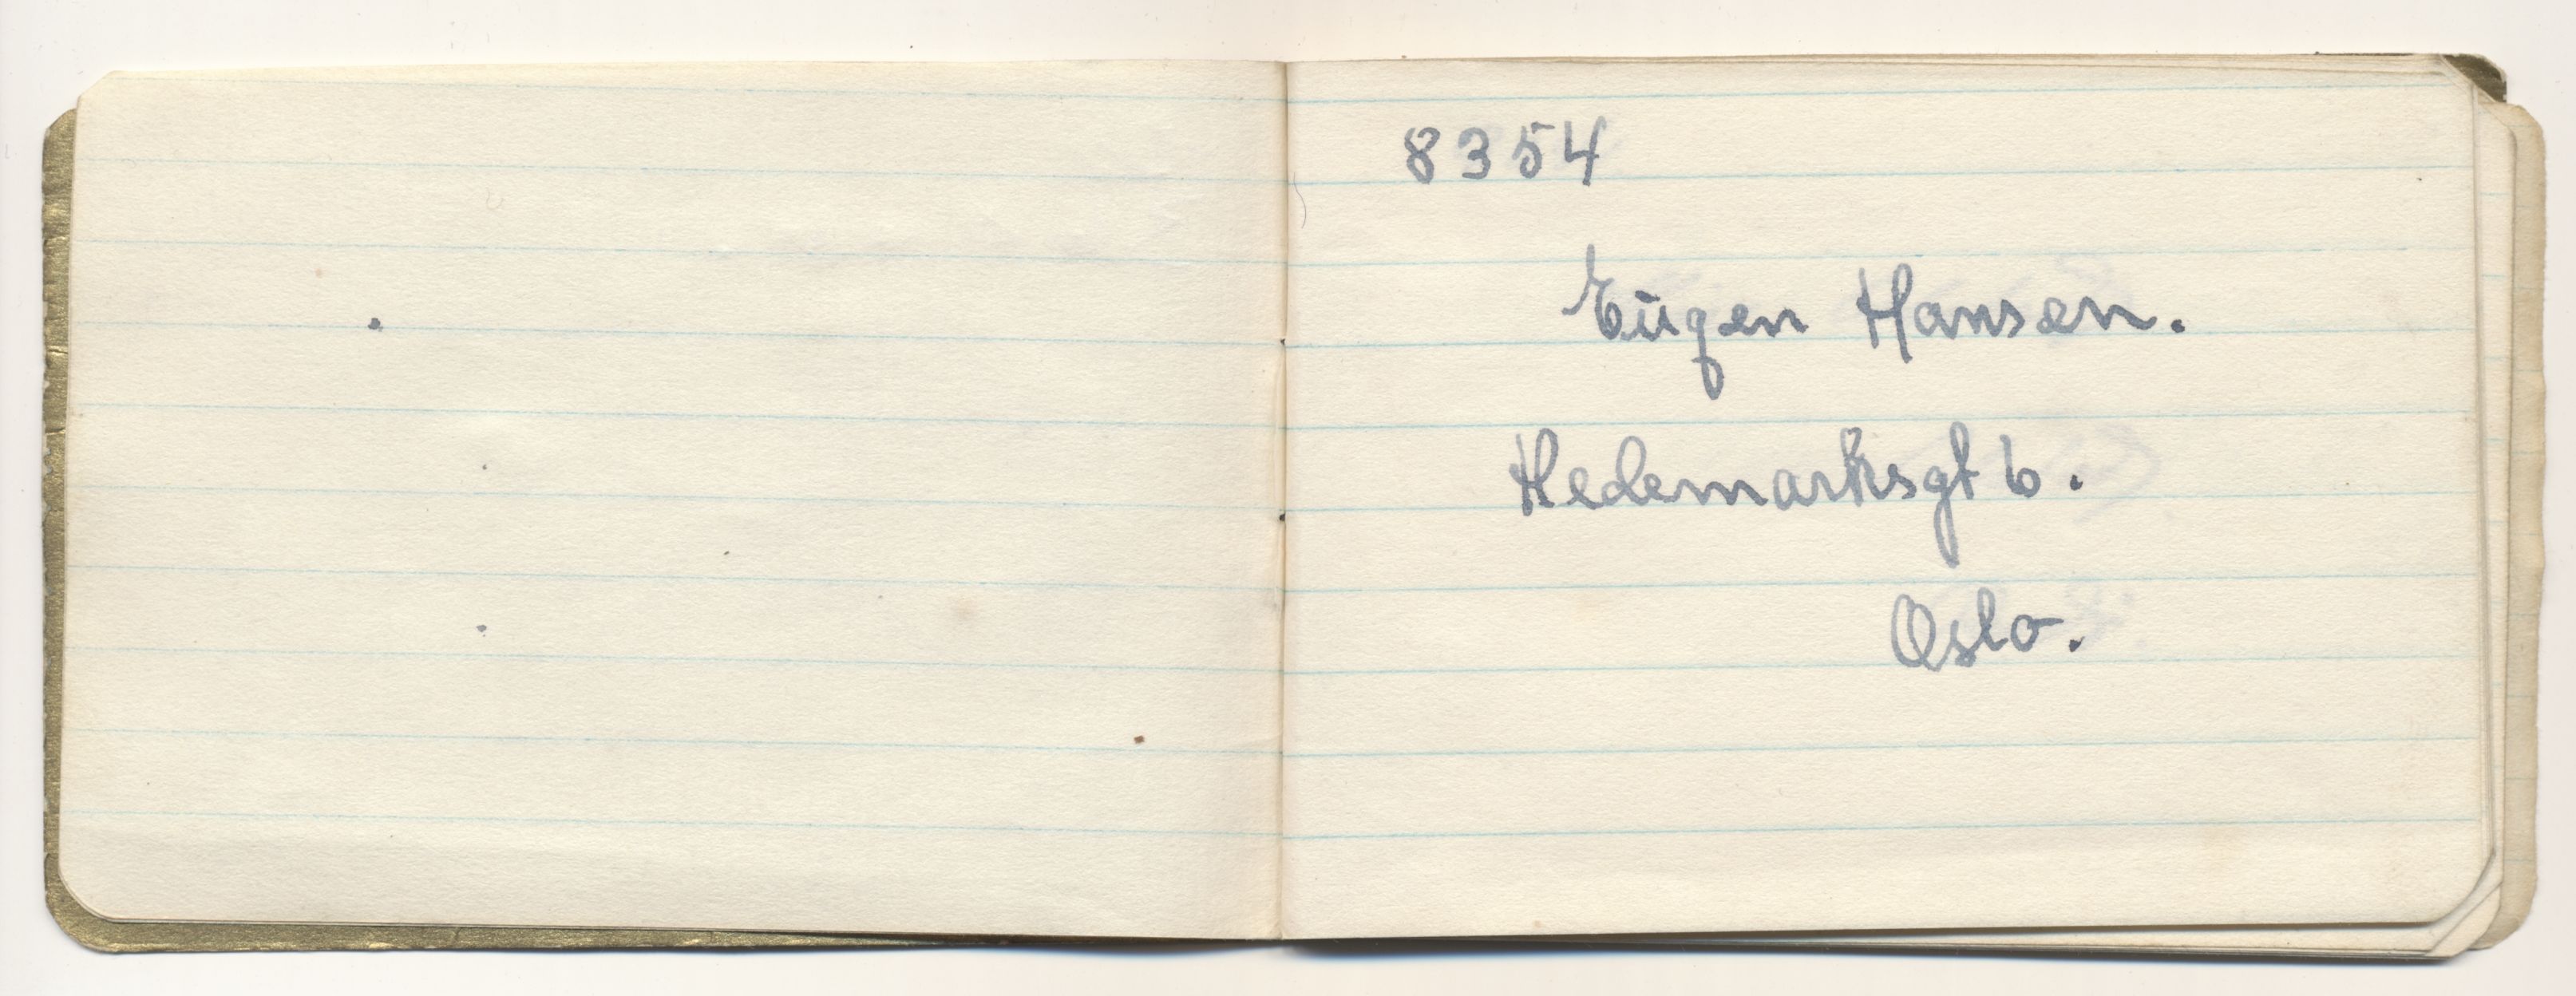 8354
Eugen Hansen.
Hedemarksgt 6.
Oslo.